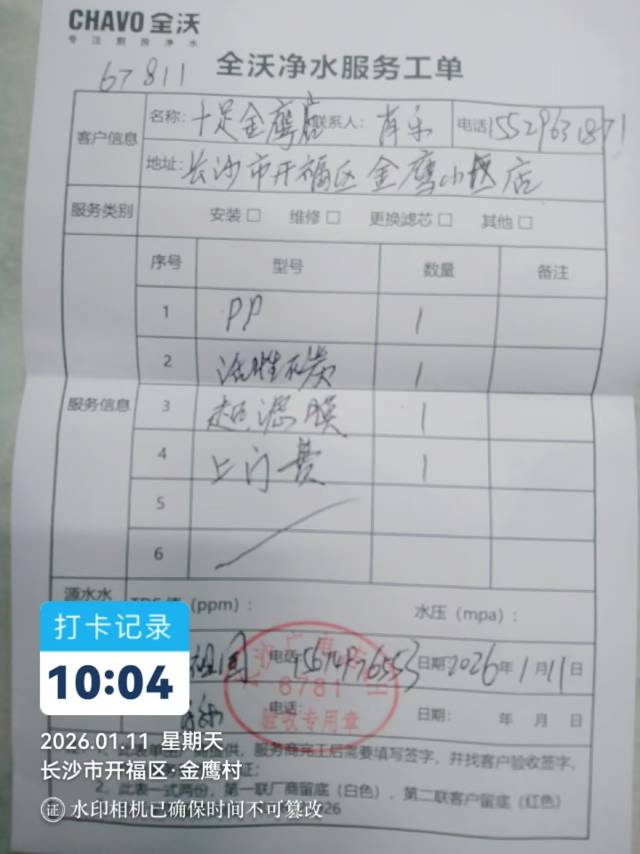 CHAVO 全沃
专注厨房净水
67811
全沃净水服务工单
客户信息
名称：十足金鹰店 联系人：肖乐 电话15529631871
地址：长沙市开福区金鹰小区店
服务类别 安装□ 维修□ 更换滤芯□ 其他□
服务信息
序号 型号 数量 备注
1 PP 1
2 活性碳 1
3 超滤膜 1
4 上门费 1
5
6
源水水
TDS 值（ppm）： 水压（mpa）：
祖国 电话：15674976553 日期：2026年1月11日
电话： 日期： 年 月 日
6781
验收专用章
服务商完工后需要填写签字，并找客户验收签字。
2、此表一式两份，第一联厂商留底（白色），第二联客户留底（红色）
打卡记录
10:04
2026.01.11 星期天
长沙市开福区·金鹰村
证 水印相机已确保时间不可篡改